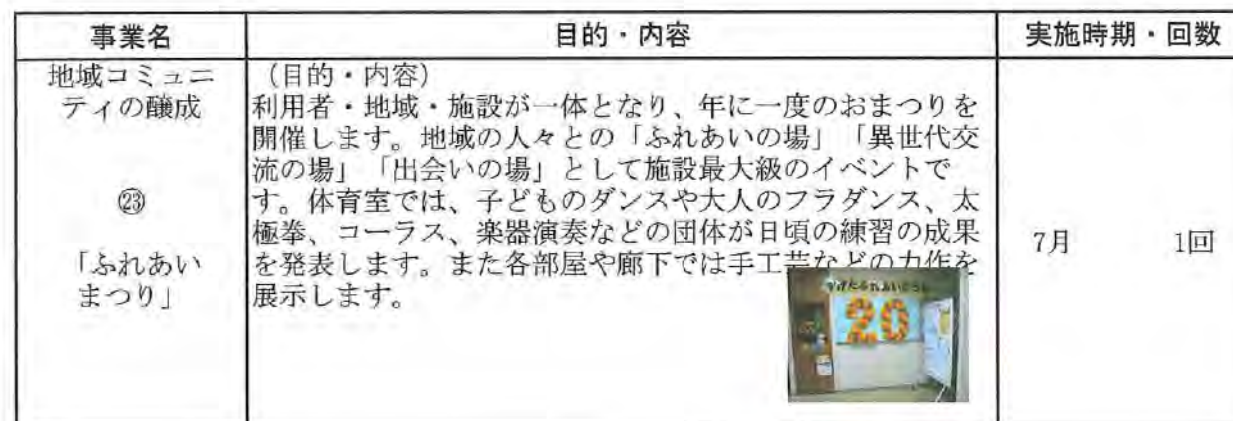 事業名
目的・内容
実施時期・回数
地域コミュニ
ティの醸成
㉓
「ふれあい
まつり」
(目的・内容)
利用者・地域・施設が一体となり、年に一度のおまつりを
開催します。地域の人々との「ふれあいの場」「異世代交
流の場」「出会いの場」として施設最大級のイベントで
す。体育室では、子どものダンスや大人のフラダンス、太
極拳、コーラス、楽器演奏などの団体が日頃の練習の成果
を発表します。また各部屋や廊下では手工芸などの力作を
展示します。
20
7月 1回